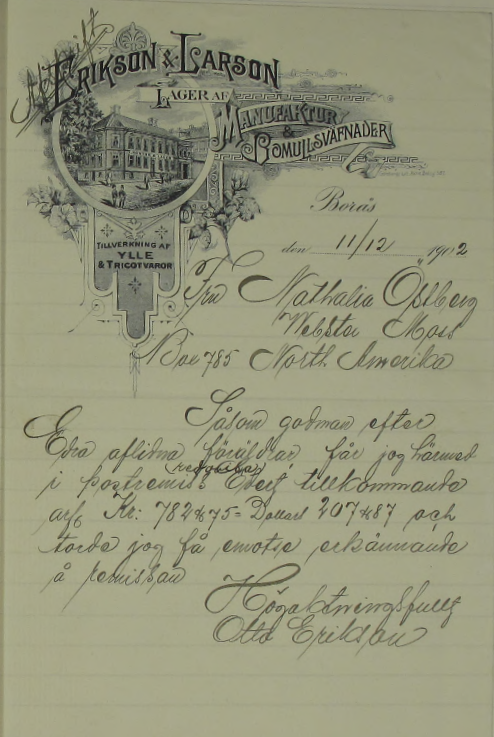 Afskrift
ERIKSON & LARSON
LAGER AF
MANUFAKTUR
& BOMULLSVÄFNADER
TILLVERKNING AF
YLLE
& TRICOTVAROR
Borås
den 11/12 1902
Fru Nathalia Östberg
Webster Mass
Box 785 North Amerika
Såsom godman efter
Edra aflidna föräldrar får jog härmed
i postremiss Edert tillkommande
arf Kr: 782 & 75 = Dollars 207 & 87 och
torde jog få emotse erkännande
å remissan
Högaktningsfullt
Otto Erikson